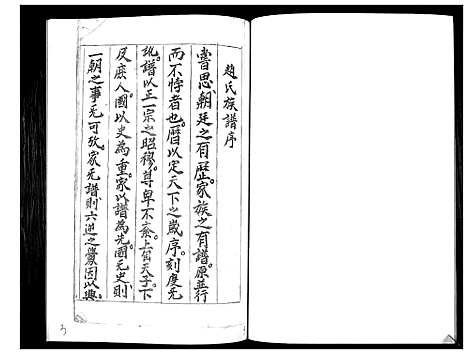 趙氏族譜序
嘗思朝廷之有歷家族之有譜原並行
而不悖者也。曆以定天下之歲序。刻度无
訛。譜以正一宗之昭穆。尊卑不紊。上自天子。下
及庶人。國以史為重。家以譜為先。國无史則
一朝之事无可攷。家无譜則六逆之釁因以興。